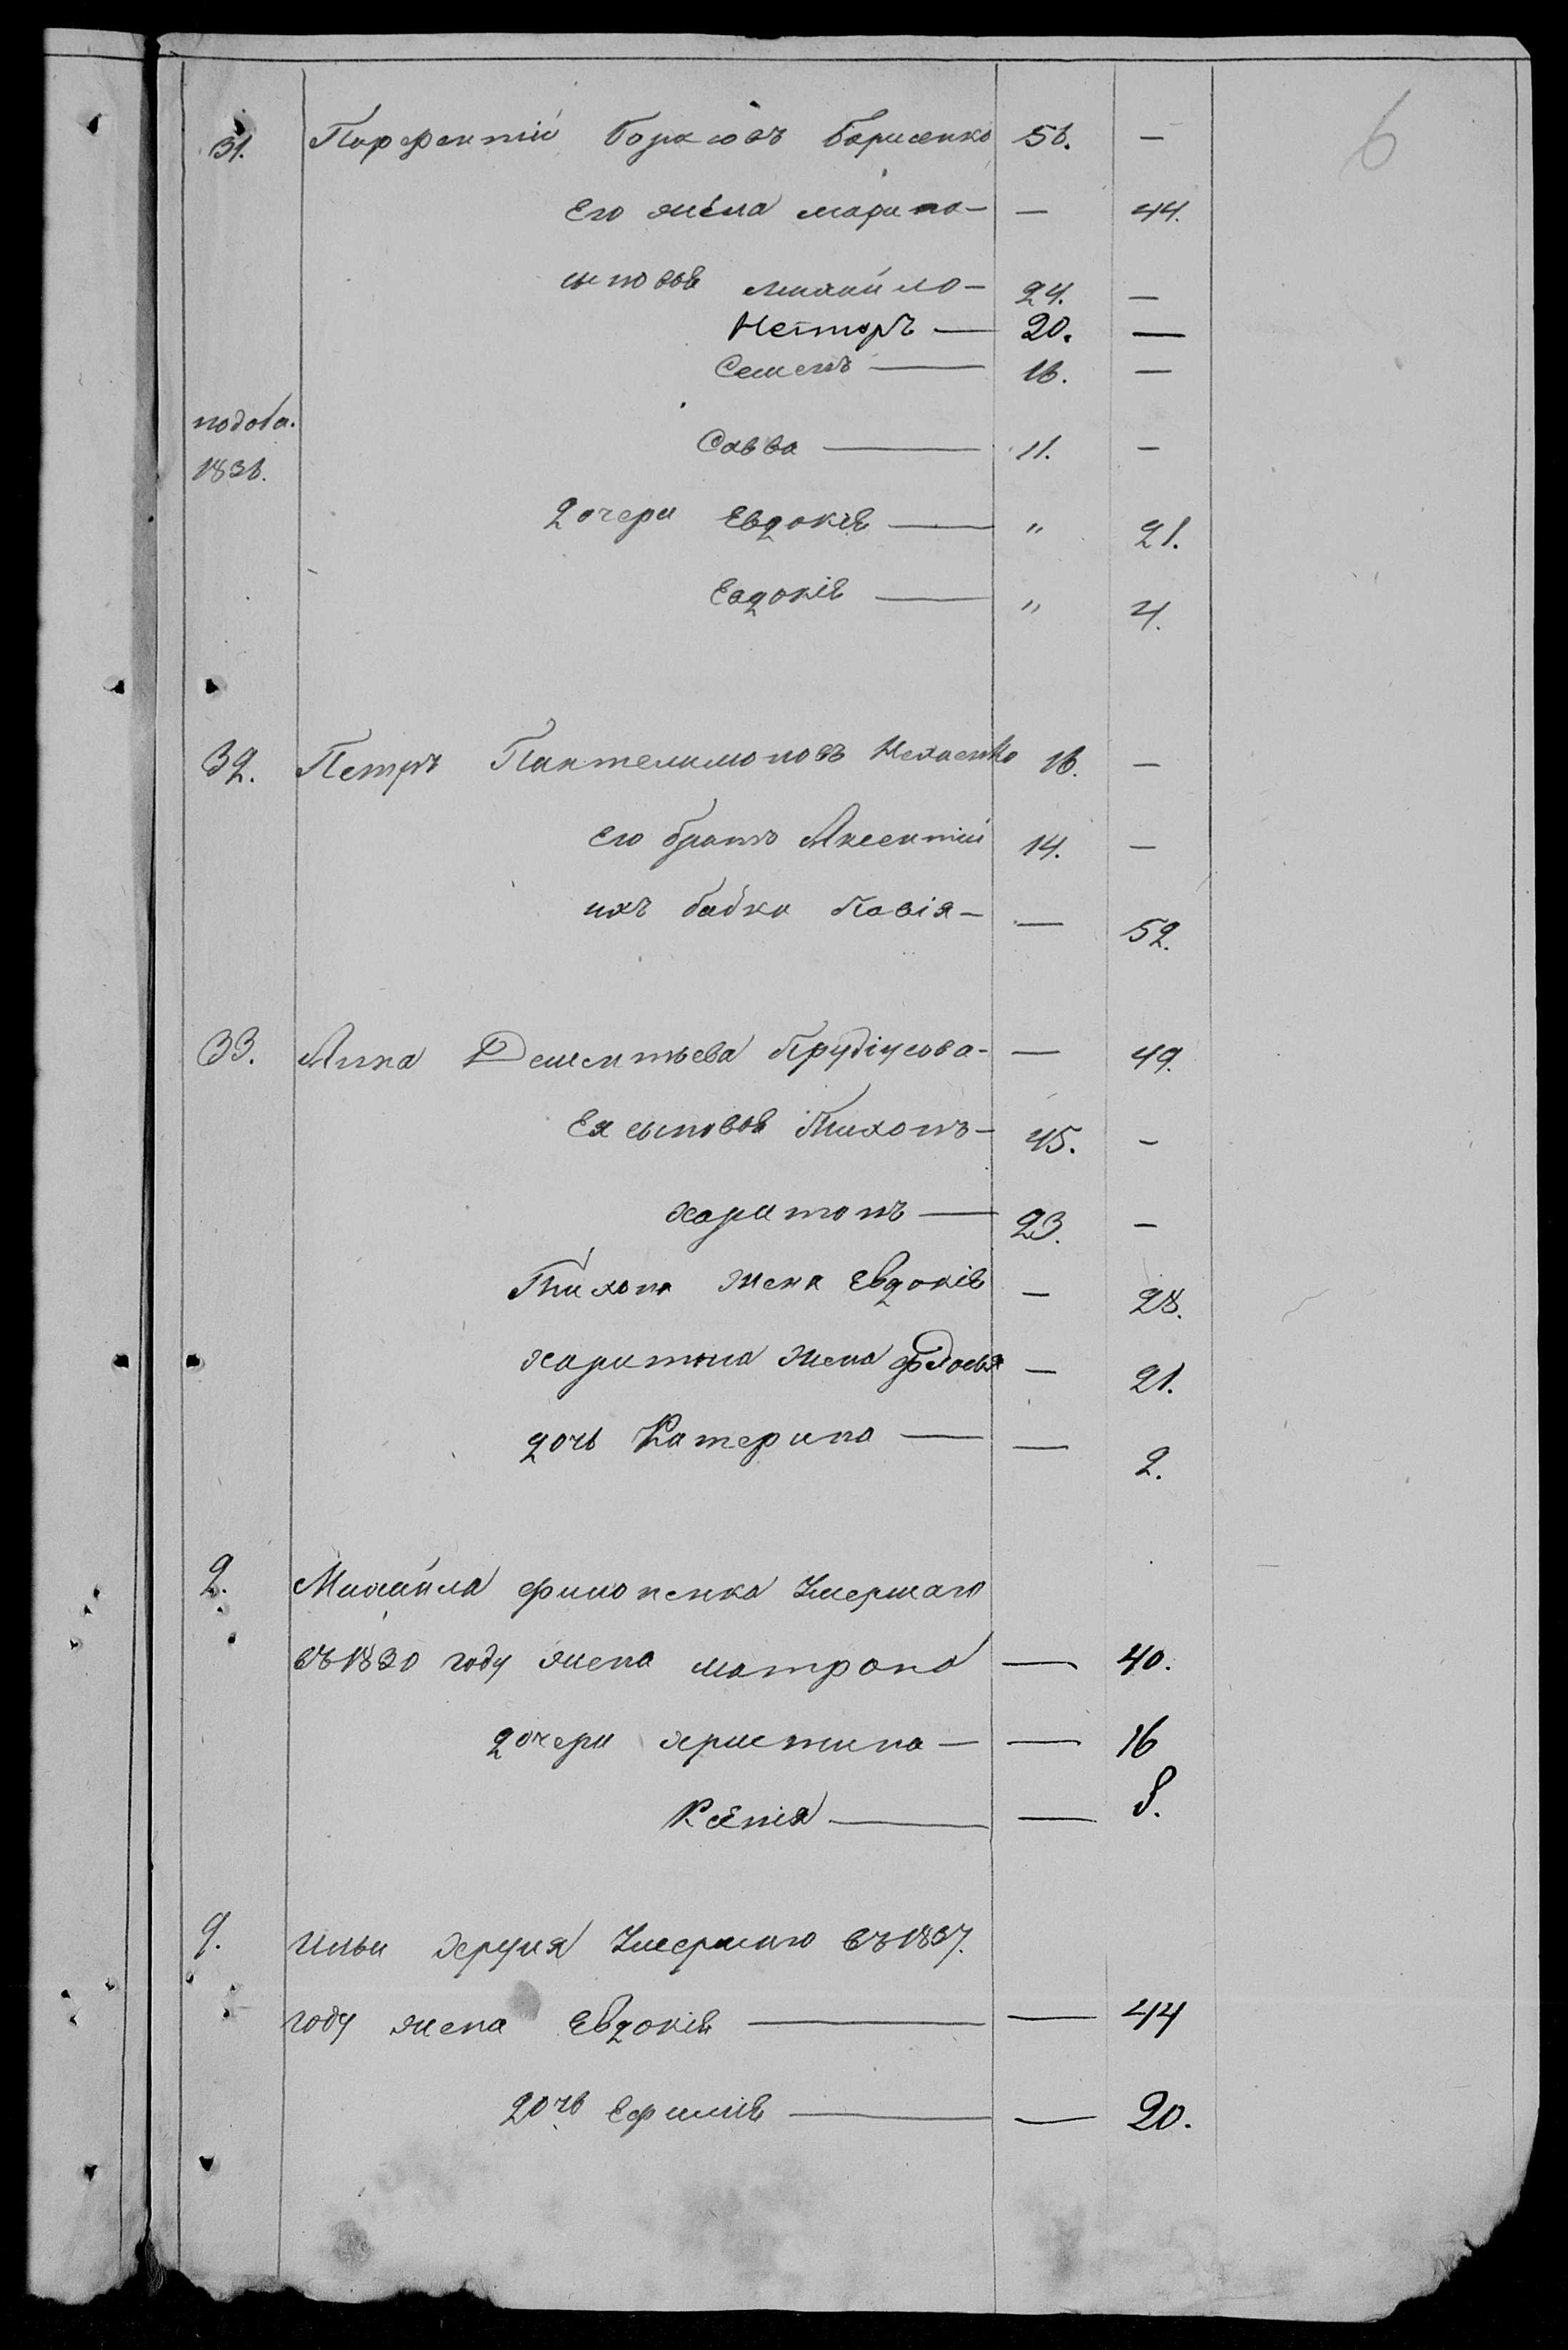 6
31. Парфентій Борисовъ Борисенко 56. —
Его жена Марина — — 44.
сыновья Михайло — 24. —
Несторъ — 20. —
Семенъ — 16. —
Савва — 11. —
1836.
дочери Евдокія — " 21.
Евдокія — " 4.
32. Петръ Пантелимоновъ Нехаенко 16. —
Его братъ Аксентій 14. —
ихъ бабка — — 52.
33. Анна Дементьева — — 49.
Ея сыновья Тихонъ — 45. —
Харитонъ — 23. —
Тихона жена Евдокія — 28.
Харитона жена — 21.
дочь Катерина — — 2.
2. Михайла Филоненка Умершаго
въ 1830 году жена матрона — 40.
дочери христина — — 16
Ксенія — — 8.
9. Ильи Умершаго въ 1837.
году жена Евдокія — — 44
дочь Ефимія — — 20.